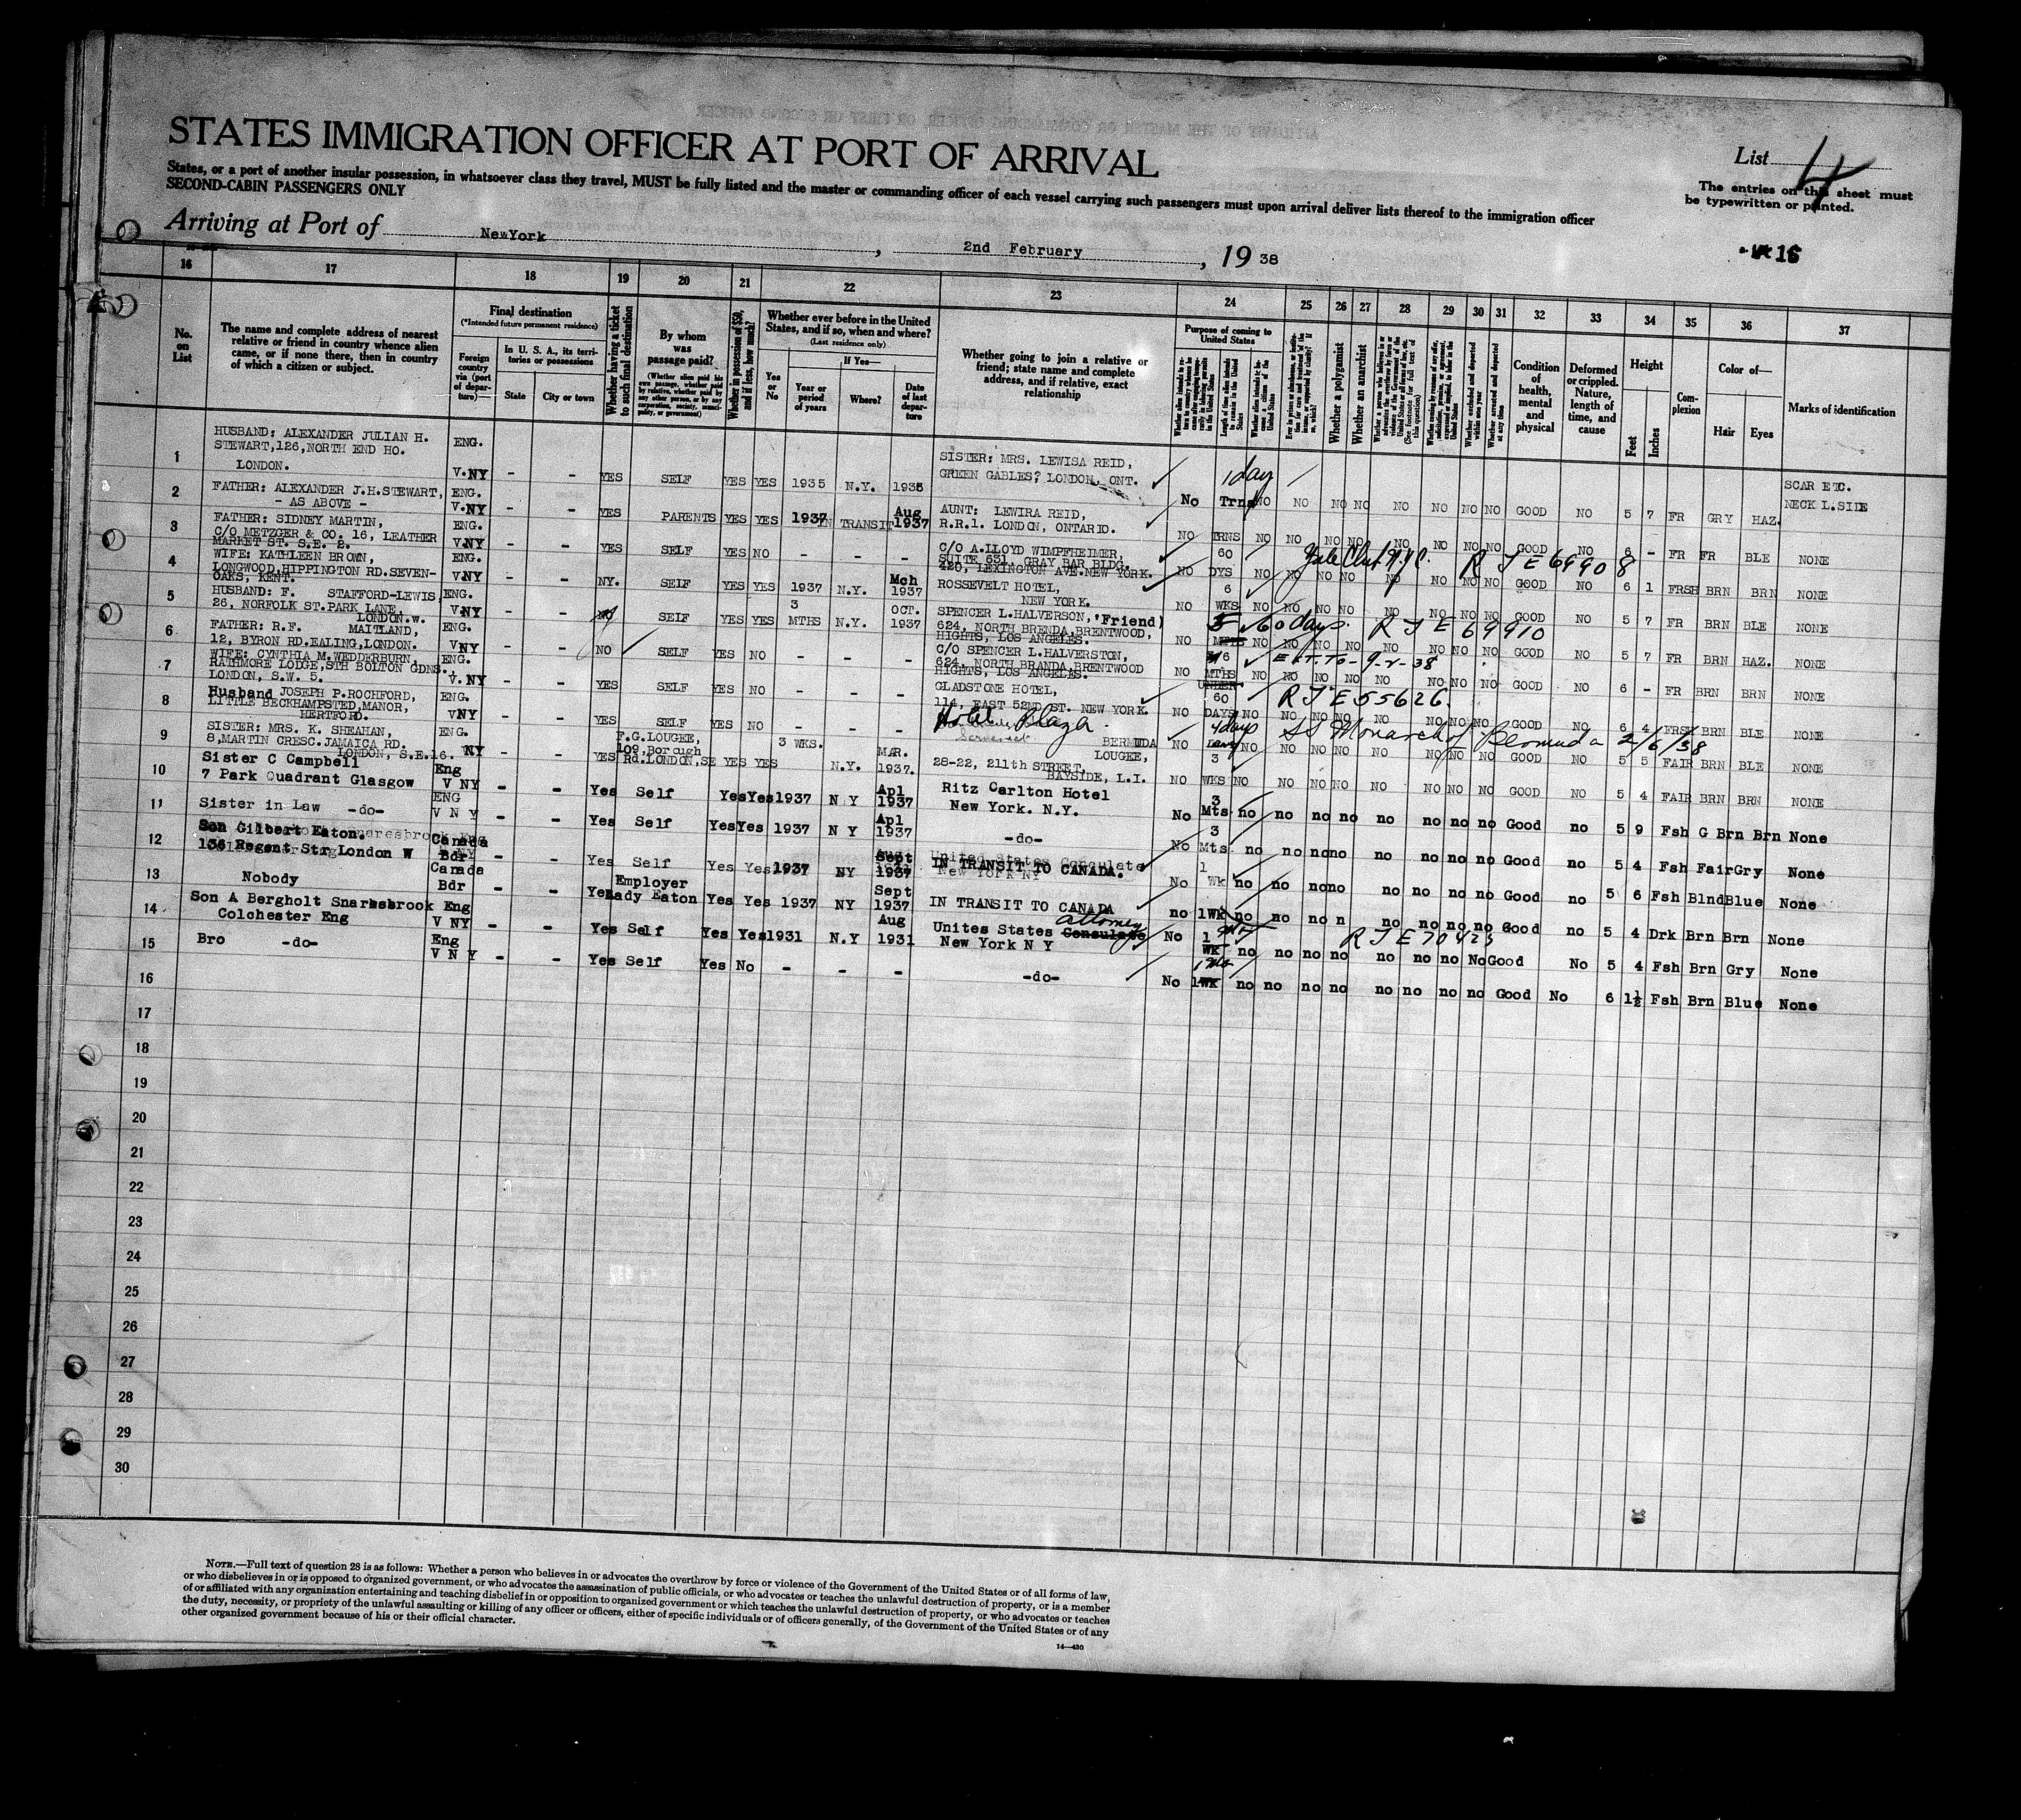 STATES IMMIGRATION OFFICER AT PORT OF ARRIVAL
States, or a port of another insular possession, in whatsoever class they travel, MUST be fully listed and the master or commanding officer of each vessel carrying such passengers must upon arrival deliver lists thereof to the immigration officer
SECOND-CABIN PASSENGERS ONLY
List 4
The entries on this sheet must
be typewritten or printed.
Arriving at Port of NewYork, 2nd February, 1938
15
16 17 18 19 20 21 22 23 24 25 26 27 28 29 30 31 32 33 34 35 36 37
No. on List
The name and complete address of nearest relative or friend in country whence alien came, or if none there, then in country of which a citizen or subject.
Final destination
(*Intended future permanent residence)
Foreign country via (port of departure)—
In U. S. A., its territories or possessions
State
City or town
Whether having a ticket to such final destination
By whom was passage paid?
(Whether alien paid his own passage, whether paid by relative, whether paid by any other person, or by any corporation, society, municipality, or government)
Whether in possession of $50, and if less, how much?
Whether ever before in the United States, and if so, when and where?
(Last residence only)
Yes or No
If Yes—
Year or period of years
Where?
Date of last departure
Whether going to join a relative or friend; state name and complete address, and if relative, exact relationship
Purpose of coming to United States
Whether a polygamist
Whether an anarchist
Condition of health, mental and physical
Deformed or crippled. Nature, length of time, and cause
Height
Feet
Inches
Complexion
Color of—
Hair
Eyes
Marks of identification
1 HUSBAND: ALEXANDER JULIAN H. STEWART,126,NORTH END HO. LONDON. ENG. V.NY - - YES SELF YES YES 1935 N.Y. 1935 SISTER: MRS. LEWISA REID, GREEN GABLES? LONDON, ONT. 1 day No Trns NO NO NO NO NO NO NO NO GOOD NO 5 7 FR GRY HAZ. SCAR ETC. NECK L.SIDE
2 FATHER: ALEXANDER J.H.STEWART, - AS ABOVE - ENG. V.NY - - YES PARENTS YES YES 1937 IN TRANSIT Aug 1937 AUNT: LEWIRA REID, R.R.1. LONDON, ONTARIO. NO TRNS NO NO NO NO NO NO NO NO GOOD NO 6 - FR FR BLE NONE
3 FATHER: SIDNEY MARTIN, C/O METZGER & CO. 16, LEATHER MARKET ST. S.E. 2. ENG. V.NY - - YES SELF YES NO - - - C/O A.LLOYD WIMPFHEIMER, SUITE 631, GRAY BAR BLDG. 420, LEXINGTON AVE.NEW YORK. NO 60 DYS NO NO NO NO NO NO NO NO GOOD NO 6 1 FRSH BRN BRN NONE
Yale Club N.Y.C. R J E 69908
4 WIFE: KATHLEEN BROWN, LONGWOOD,HIPPINGTON RD.SEVEN-OAKS, KENT. ENG. V.NY - - NY. SELF YES YES 1937 N.Y. Mch 1937 ROSSEVELT HOTEL, NEW YORK. NO 6 WKS NO NO NO NO NO NO NO NO GOOD NO 5 7 FR BRN BLE NONE
5 HUSBAND: F. STAFFORD-LEWIS, 26, NORFOLK ST.PARK LANE, LONDON.w. ENG. V.NY - - SELF YES YES 3 MTHS N.Y. OCT. 1937 SPENCER L.HALVERSON, (Friend) 624, NORTH BRENDA,BRENTWOOD, HIGHTS, LOS ANGELES. NO MTHS NO NO NO NO NO NO NO NO GOOD NO 5 7 FR BRN HAZ. NONE
60 days. R J E 69910
6 FATHER: R.F. MAITLAND, 12, BYRON RD.EALING,LONDON. ENG. V.NY - - NO SELF YES NO - - - C/O SPENCER L.HALVERSTON, 624, NORTH BRANDA,BRENTWOOD HIGHTS, LOS ANGELES. NO 6 MTHS NO NO NO NO NO NO NO NO GOOD NO 6 - FR BRN BRN NONE
7 WIFE: CYNTHIA M.WEDDERBURN, RATHMORE LODGE,STH BOLTON GDNS. LONDON, S.W. 5. ENG. V.NY - - YES SELF YES NO - - - GLADSTONE HOTEL, 114, EAST 52ND ST. NEW YORK. NO UNDER 60 DAYS NO NO NO NO NO NO NO NO GOOD NO 6 4 FRSH BRN BLE NONE
R J E 55626.
8 Husband JOSEPH P.ROCHFORD, LITTLE BECKHAMPSTED,MANOR, HERTFORD. ENG. VNY - - YES SELF YES NO - - - Hotel Plaza BERMUDA NO 4 days NO NO NO NO NO NO NO NO GOOD NO 5 5 FAIR BRN BLE NONE
SS Monarch of Bermuda 2/6/38
9 SISTER: MRS. K. SHEAHAN, 8,MARTIN CRESC.JAMAICA RD. LONDON, S.E.16. ENG. NY - - YES F.G.LOUGEE, 109 Borough Rd.LONDON,SE YES YES 3 WKS. N.Y. MAR. 1937. LOUGEE, 28-22, 211th STREET, BAYSIDE, L.I. NO 3 WKS NO NO NO NO NO NO NO NO GOOD NO 5 4 FAIR BRN BRN NONE
10 Sister C Campbell 7 Park Quadrant Glasgow Eng V NY - - Yes Self Yes Yes 1937 N Y Apl 1937 Ritz Carlton Hotel New York. N.Y. No 3 Mts no no no no no no no no Good no 5 9 Fsh G Brn Brn None
11 Sister in Law -do- ENG V N Y - - Yes Self Yes Yes 1937 N Y Apl 1937 -do- No 3 Mts no no no no no no no no Good no 5 4 Fsh Fair Gry None
12 Son Gilbert Eaton. 136 Regent Str London W Canada Bdr - - Yes Self Yes Yes 1937 NY Sept 1937 IN TRANSIT TO CANADA. No 1 Wk no no no no no no no no Good no 5 6 Fsh Blnd Blue None
13 Nobody Canada Bdr - - Yes Employer Lady Eaton Yes Yes 1937 NY Sept 1937 IN TRANSIT TO CANADA no 1Wk no no no n no no no no Good no 5 4 Drk Brn Brn None
14 Son A Bergholt Snaresbrook Eng Colchester Eng V NY - - Yes Self Yes Yes 1931 N.Y Aug 1931 Unites States Consulate attorney New York N Y No 1 Wk no no no no no no no No Good No 5 4 Fsh Brn Gry None
R J E 70423
15 Bro -do- Eng V N Y - - Yes Self Yes No - - - -do- No 1Wk no no no no no no no no Good No 6 1½ Fsh Brn Blue None
16
17
18
19
20
21
22
23
24
25
26
27
28
29
30
NOTE.—Full text of question 28 is as follows: Whether a person who believes in or advocates the overthrow by force or violence of the Government of the United States or of all forms of law,
or who disbelieves in or is opposed to organized government, or who advocates the assassination of public officials, or who advocates or teaches the unlawful destruction of property, or is a member
of or affiliated with any organization entertaining and teaching disbelief in or opposition to organized government or which teaches the unlawful destruction of property, or who advocates or teaches
the duty, necessity, or propriety of the unlawful assaulting or killing of any officer or officers, either of specific individuals or of officers generally, of the Government of the United States or of any
other organized government because of his or their official character.
14—430